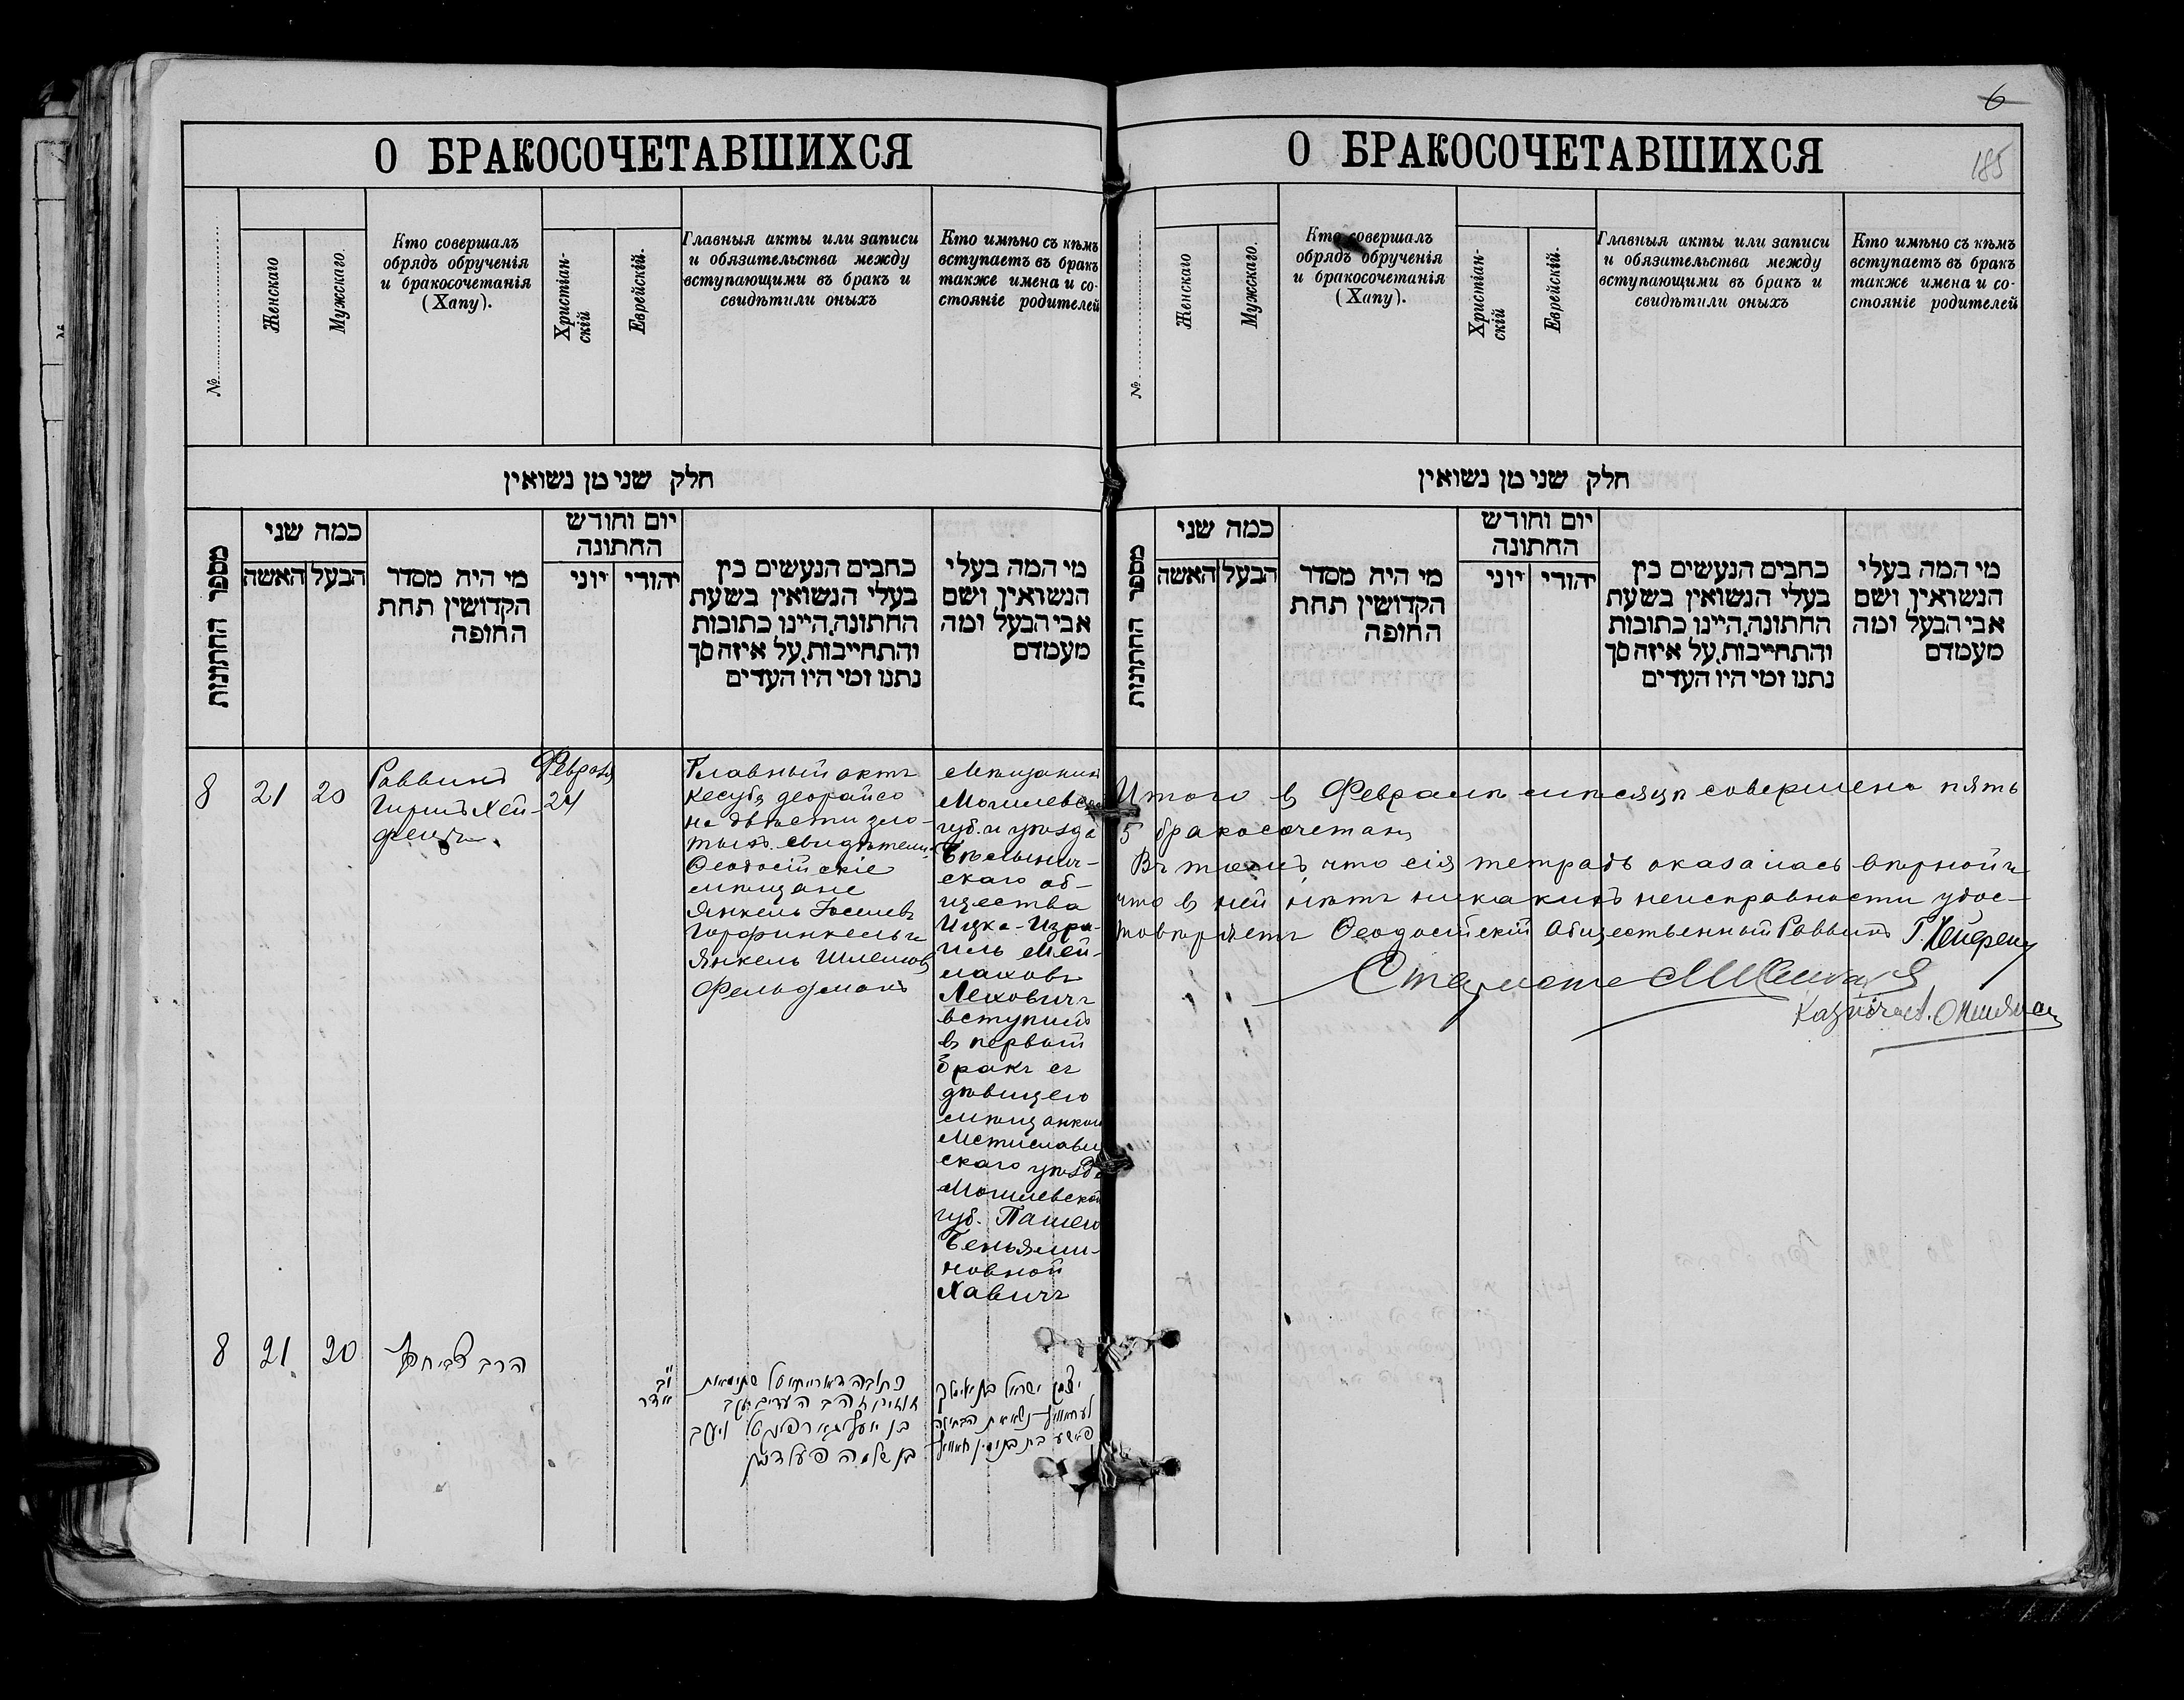 6
185
О БРАКОСОЧЕТАВШИХСЯ
№
Женскаго
Мужскаго.
Кто совершалъ
обрядъ обрученія
и бракосочетанія
(Хапу).
Христіан-
скій
Еврейскій.
Главныя акты или записи
и обязательства между
вступающими въ бракъ и
свидѣтили оныхъ
Кто имѣно съ кѣмъ
вступаетъ въ бракъ
также имена и со-
стояніе родителей
חלק שני מן נשואין
מספר החתונות
כמה שני
האשה
הבעל
מי היה מסדר
הקדושין תחת
החופה
יום וחודש
החתונה
יוני
יהודי
כתבים הנעשים בין
בעלי הנשואין בשעת
החתונה, היינו כתובות
והתחייבות, על איזה סך
נתנו ומי היו העדים
מי המה בעלי
הנשואין ושם
אבי הבעל ומה
מעמדם
8
21
20
Раввинъ
Гиршъ Хей-
фецъ.
Февраля
24
Главный актъ
кесубя деорайсо
на двѣсти зло-
тыхъ. свидѣтели
Ѳеодосійскіе
мѣщане
Янкель Іоселевъ
Горфинкель и
Янкель Шлемовъ
Фельдманъ
Мѣщанинъ
Могилевской
губ. и уѣзда
Бѣлынич-
скаго об-
щества
Ицка-Изра-
иль Мей-
лаховъ
Леховичъ
вступилъ
въ первый
бракъ съ
дѣвицею
мѣщанкой
Мстиславль
скаго уѣзда
Могилевской
губ. Пашею
Беньями-
новной
Хавичъ
8
21
20
הרב
אדר
בן שלמה פעלדמאן
О БРАКОСОЧЕТАВШИХСЯ
№
Женскаго
Мужскаго.
Кто совершалъ
обрядъ обрученія
и бракосочетанія
(Хапу).
Христіан-
скій
Еврейскій.
Главныя акты или записи
и обязательства между
вступающими въ бракъ и
свидѣтили оныхъ
Кто имѣно съ кѣмъ
вступаетъ въ бракъ
также имена и со-
стояніе родителей
חלק שני מן נשואין
מספר החתונות
כמה שני
האשה
הבעל
מי היה מסדר
הקדושין תחת
החופה
יום וחודש
החתונה
יוני
יהודי
כתבים הנעשים בין
בעלי הנשואין בשעת
החתונה, היינו כתובות
והתחייבות, על איזה סך
נתנו ומי היו העדים
מי המה בעלי
הנשואין ושם
אבי הבעל ומה
מעמדם
Итого въ Февралѣ мѣсяцѣ совершено пять
5 бракосочетаній
Въ томъ, что сія тетрадь оказалась вѣрной и
что въ ней нѣтъ никакихъ неисправности удос-
товѣряетъ Ѳеодосійскій Общественный Раввинъ Г. Хейфецъ
Староста
Казначей